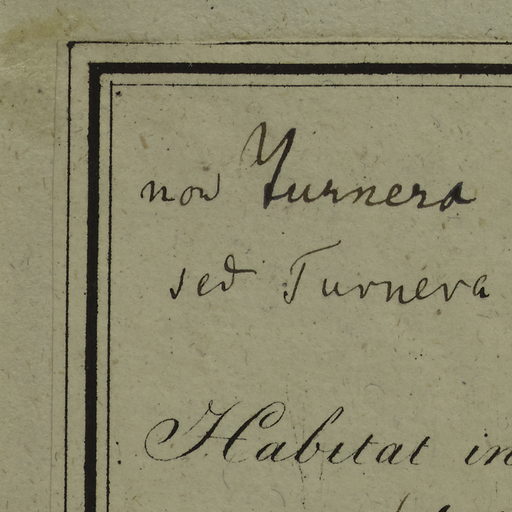 non Yurnera
sed Turnera
Habitat in